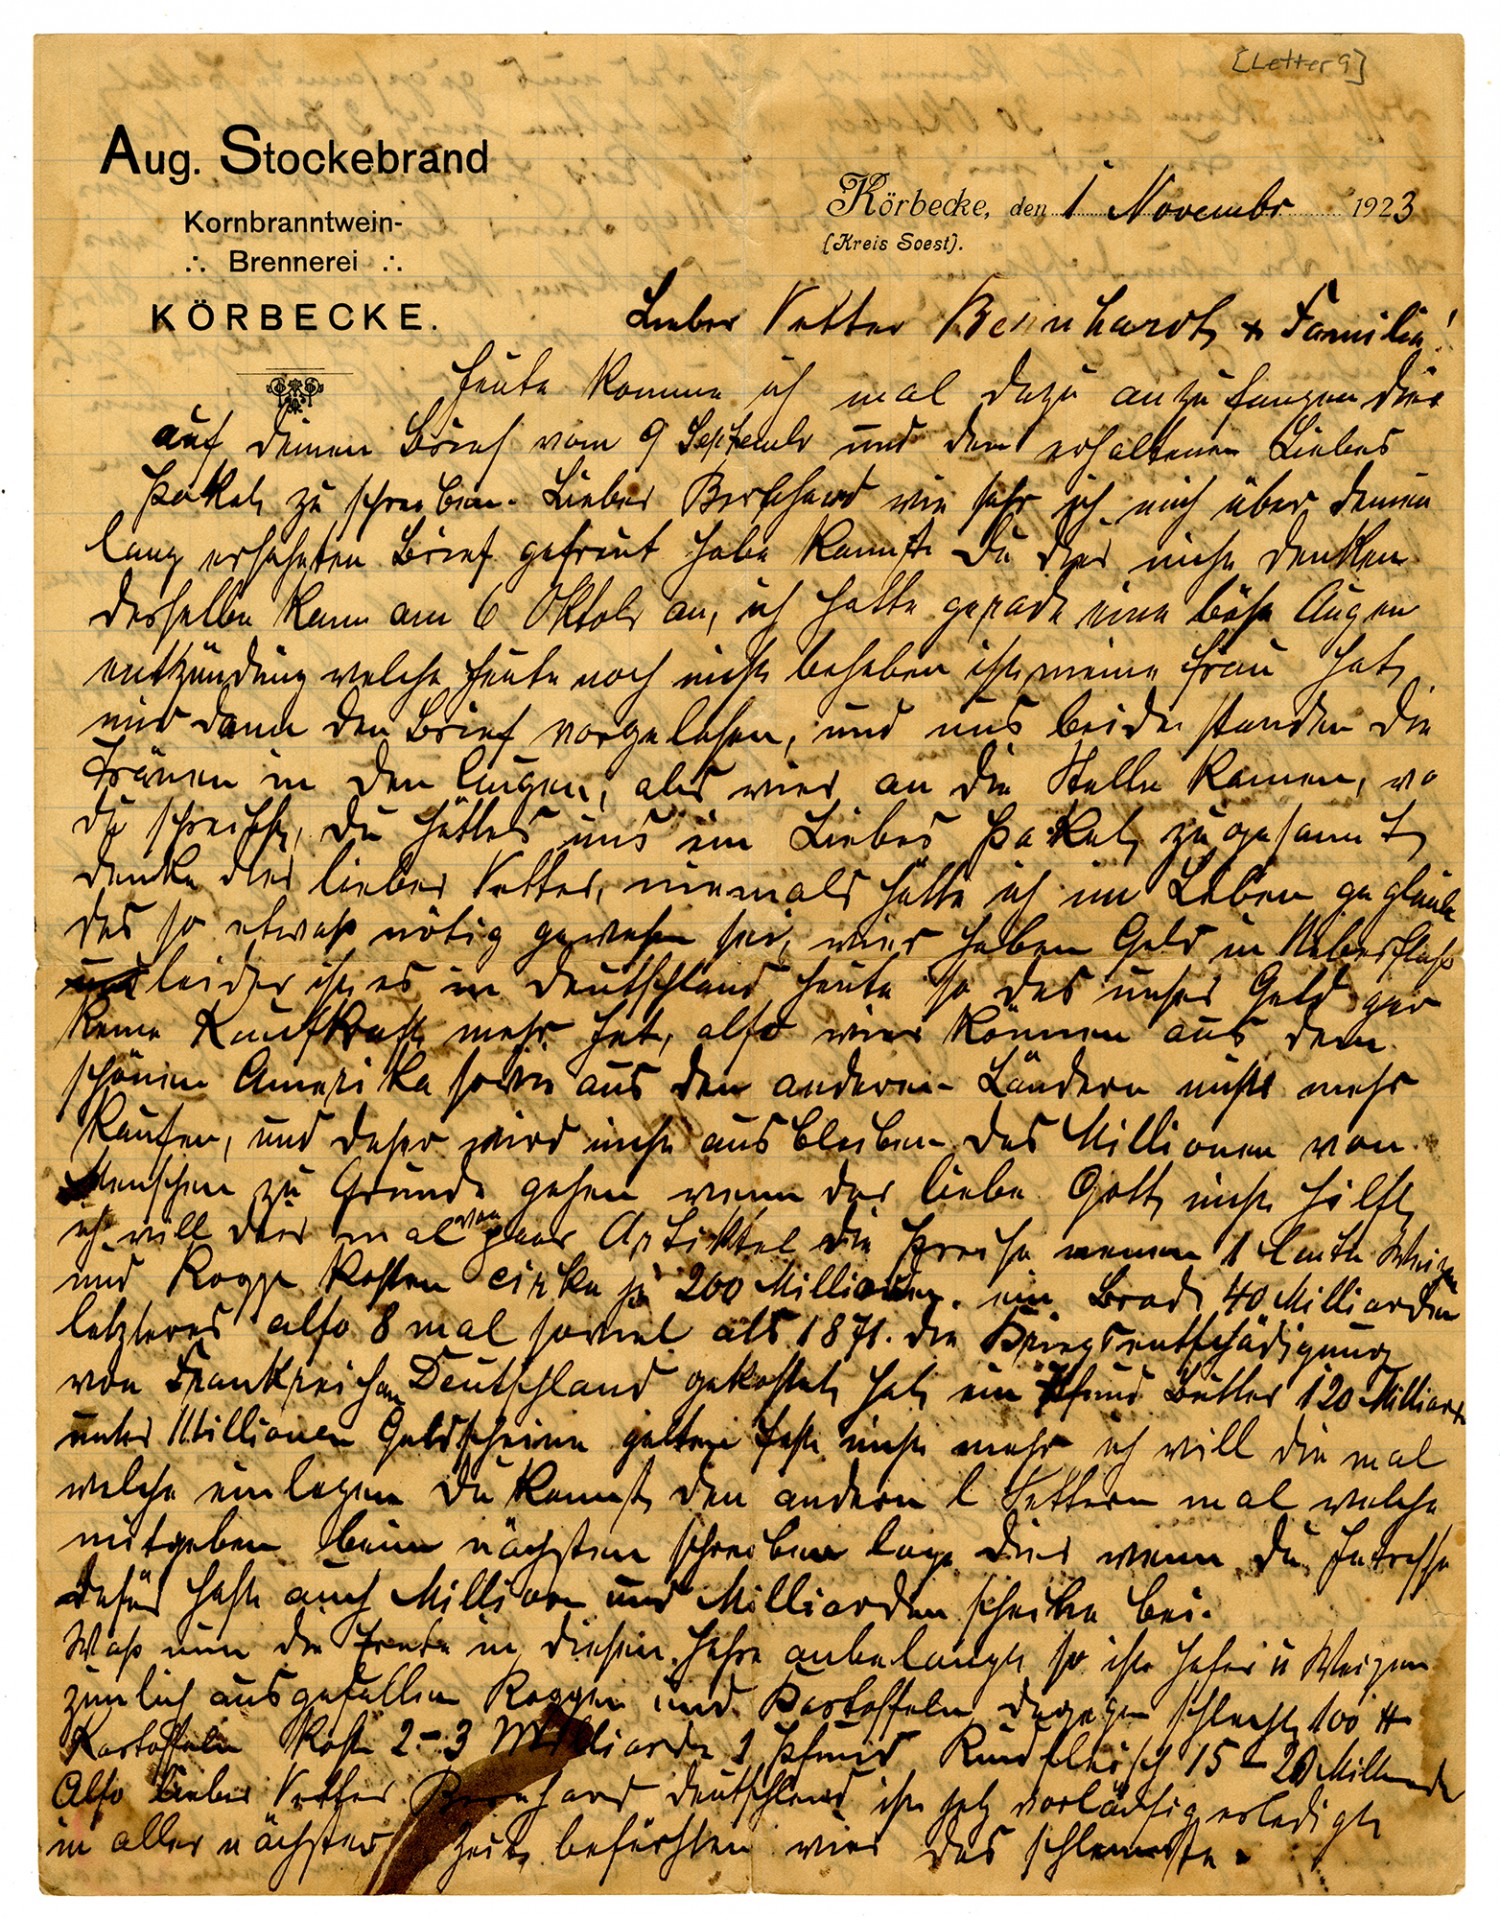 [Letter 9]
Aug. Stockebrand
Kornbranntwein-
∴ Brennerei ∴
KÖRBECKE.
Körbecke, den 1 Novembr 1923
(Kreis Soest).
Lieber Vetter Bernhardt & Familie!
Heute komme ich mal dazu anzufangen dier
auf deinen Brief vom 9 Septembr und den erhaltenen Liebes
Paket zu schreiben. Lieber Bernhard wie sehr ich mich über deinen
lang ersehnten Brief gefreut habe kannst du dier nicht denken
derselbe kam am 6 Oktobr an, ich hatte gerade eine böse Augen
entzündung welche heute noch nicht behoben ist, meine Frau hat
mir dann den Brief vorgelesen, und uns beide standen die
Tränen in den Augen, als wier an die Stelle kamen, wo
du schreibst, du hättes uns ein Liebes Paket zugesannt
denke dier lieber Vetter, niemals hätte ich im Leben geglaubt
das so etwaß nötig gewesen sei, wier haben Geld in Ueberfluß
leider ist es in Deutschland heute so das unser Geld gar
keine Kaufkraft mehr hat, also wier können aus dem
schönen Amerika sowie aus den anderen Ländern nichts mehr
kaufen, und daher wird nicht ausbleiben das Millionen von
Menschen zu Grunde gehen wenn der liebe Gott nicht hilft
ich will dier mal von paar Artikel die Preise nennen 1 Centn Weizen
und Rogge kosten cirka je 200 Milliarden. ein Brod 40 Milliarden
letzteres also 8 mal soviel als 1871. die Kriegsentschädigung
von Frankreich an Deutschland gekostet hat, ein Pfund Butter 120 Milliard
unter Millionen Geldscheine gelten fast nicht mehr ich will die mal
welche einlegen du kannst den andern l Vettern mal welche
mitgeben beim nächsten schreiben lege dier wenn du Intresse
dafür hast auch Million und Milliarden scheine bei.
Waß nun die Ernte in diesen Jahre anbelangt so ist Hafer u Weizen
zimlich ausgefallen Roggen und Kartoffeln dagegen schlecht, 100 ℔
Kartoffeln kost 2-3 Milliarde 1 Pfund Rindfleisch 15-20 Milliarde
Also Lieber Vetter Bernhard Deutschland ist jetz vorläufig erledigt
in aller nächster Zeit befürchten wier das schlemste.